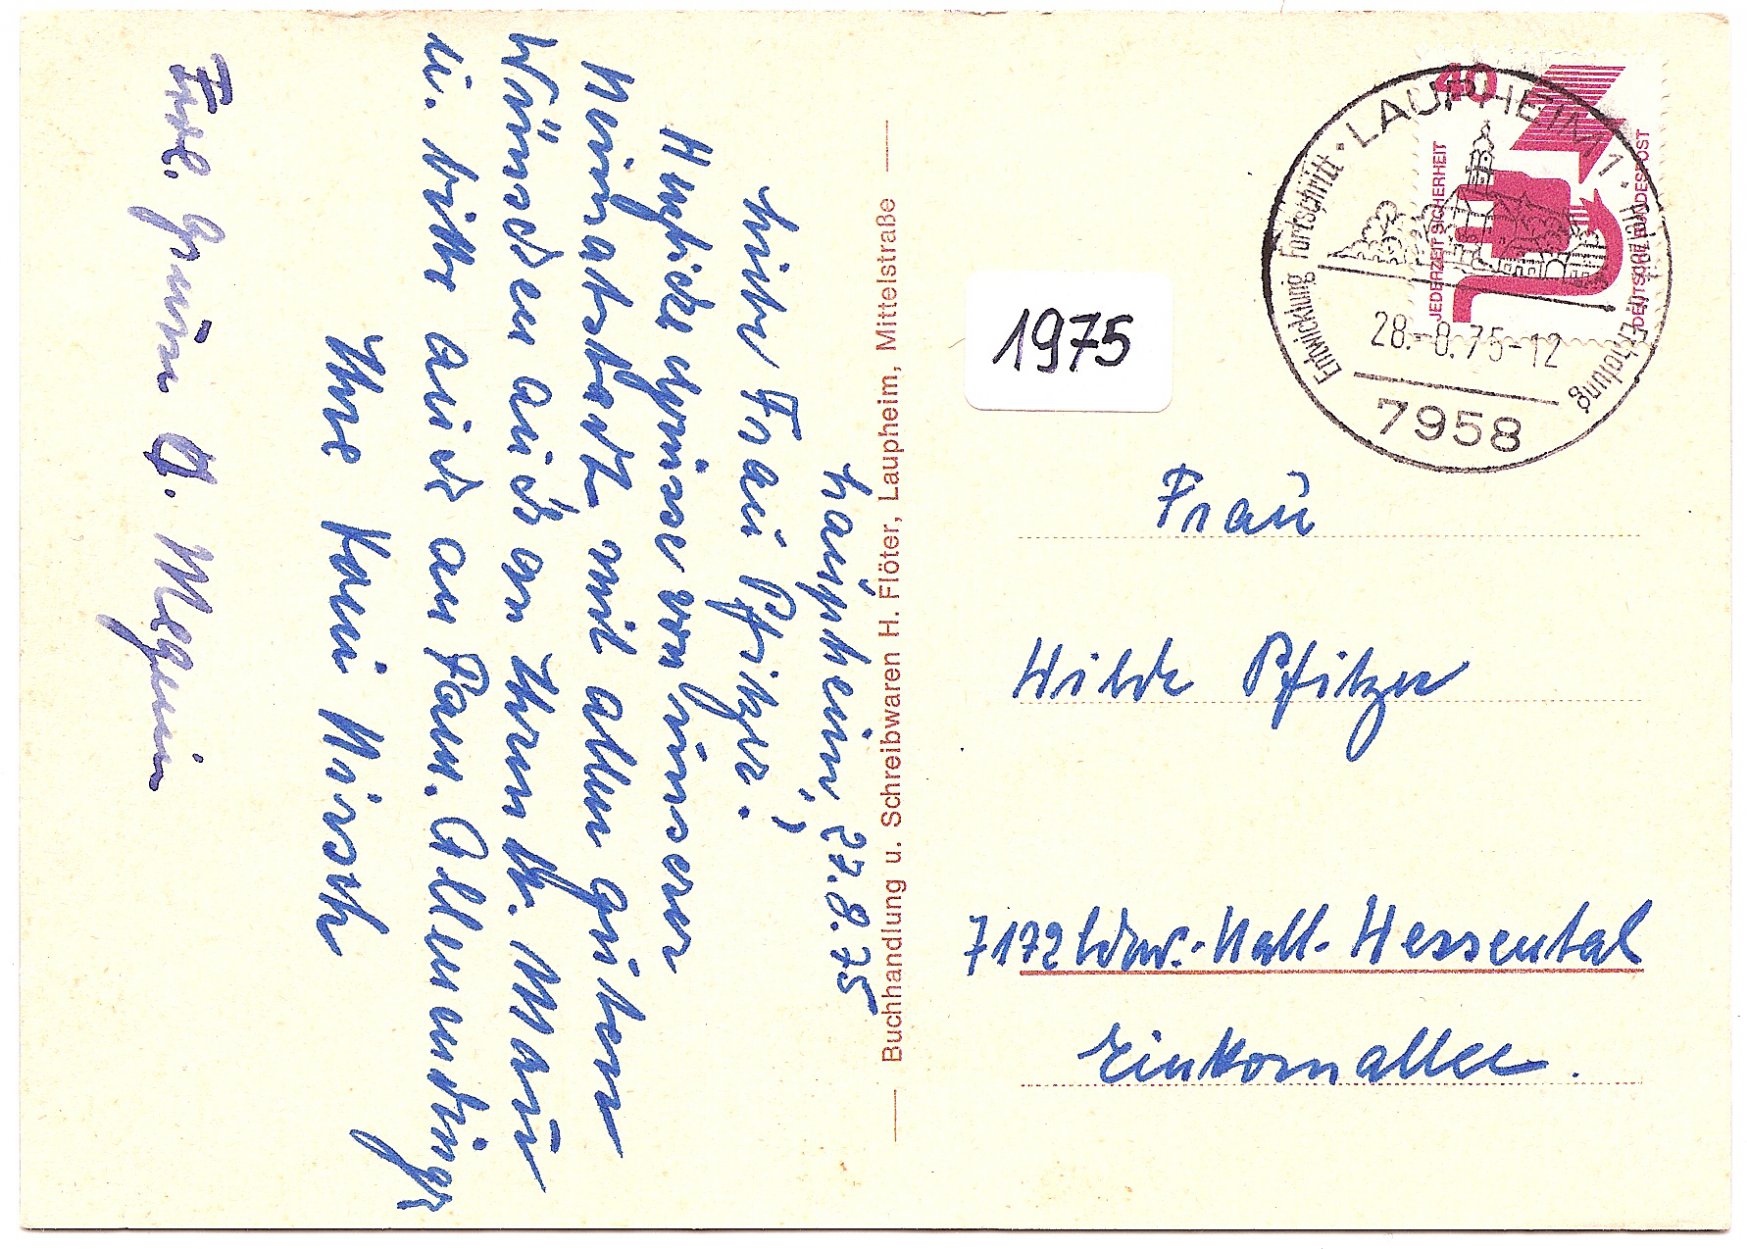 Laupheim, 27.8.75
Liebe Frau Pfitzer!
Herzliche Grüsse von unserer
Heimatstadt mit allen guten
Wünschen auch an Ihren Hr. Mann
u. bitte auch an Fam. Allmendinger
Ihre
Frdl. Grüße
Buchhandlung u. Schreibwaren H. Flöter, Laupheim, Mittelstraße
1975
40
JEDERZEIT SICHERHEIT
DEUTSCHE BUNDESPOST
LAUPHEIM 1
Entwicklung Fortschritt
Erholung
28.-8.75-12
7958
Frau
Hilde Pfitzer
7172 Schw.-Hall-Hessental
Einkornallee.